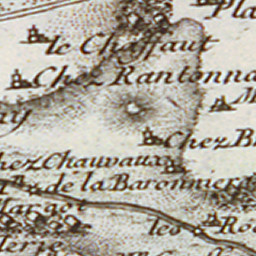 Pla
le Chaffaut
Chez Rantonna
M
ay
Chez B
hez Chauvaux
de la Baronnier
Margot
les Ro
lerie